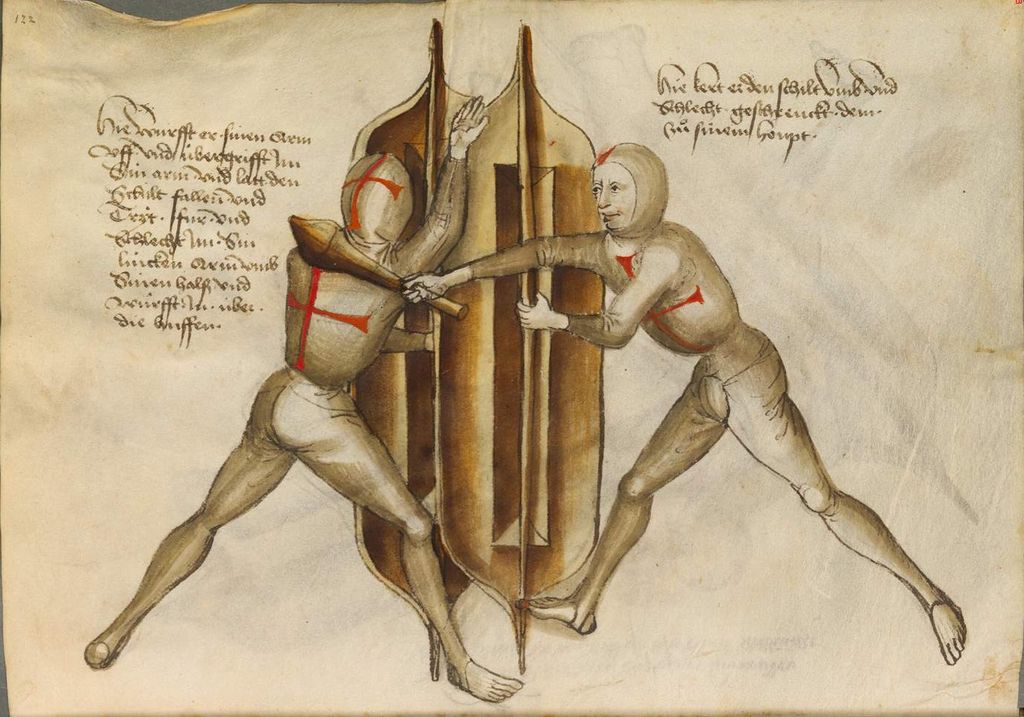 122
Hie wurfft er sinen Arm
Vff vnd übergrifft Im
Sin arm vnd latt den
Schilt fallen vnd
Tryt für vnd
Schlecht Im Sin
lincken Arm vmb
Sinen halß vnd
würfft In über
die huffen
Hie kert er den schilt vmb vnd
Schlecht geschrenckt dem
zů sinem houpt